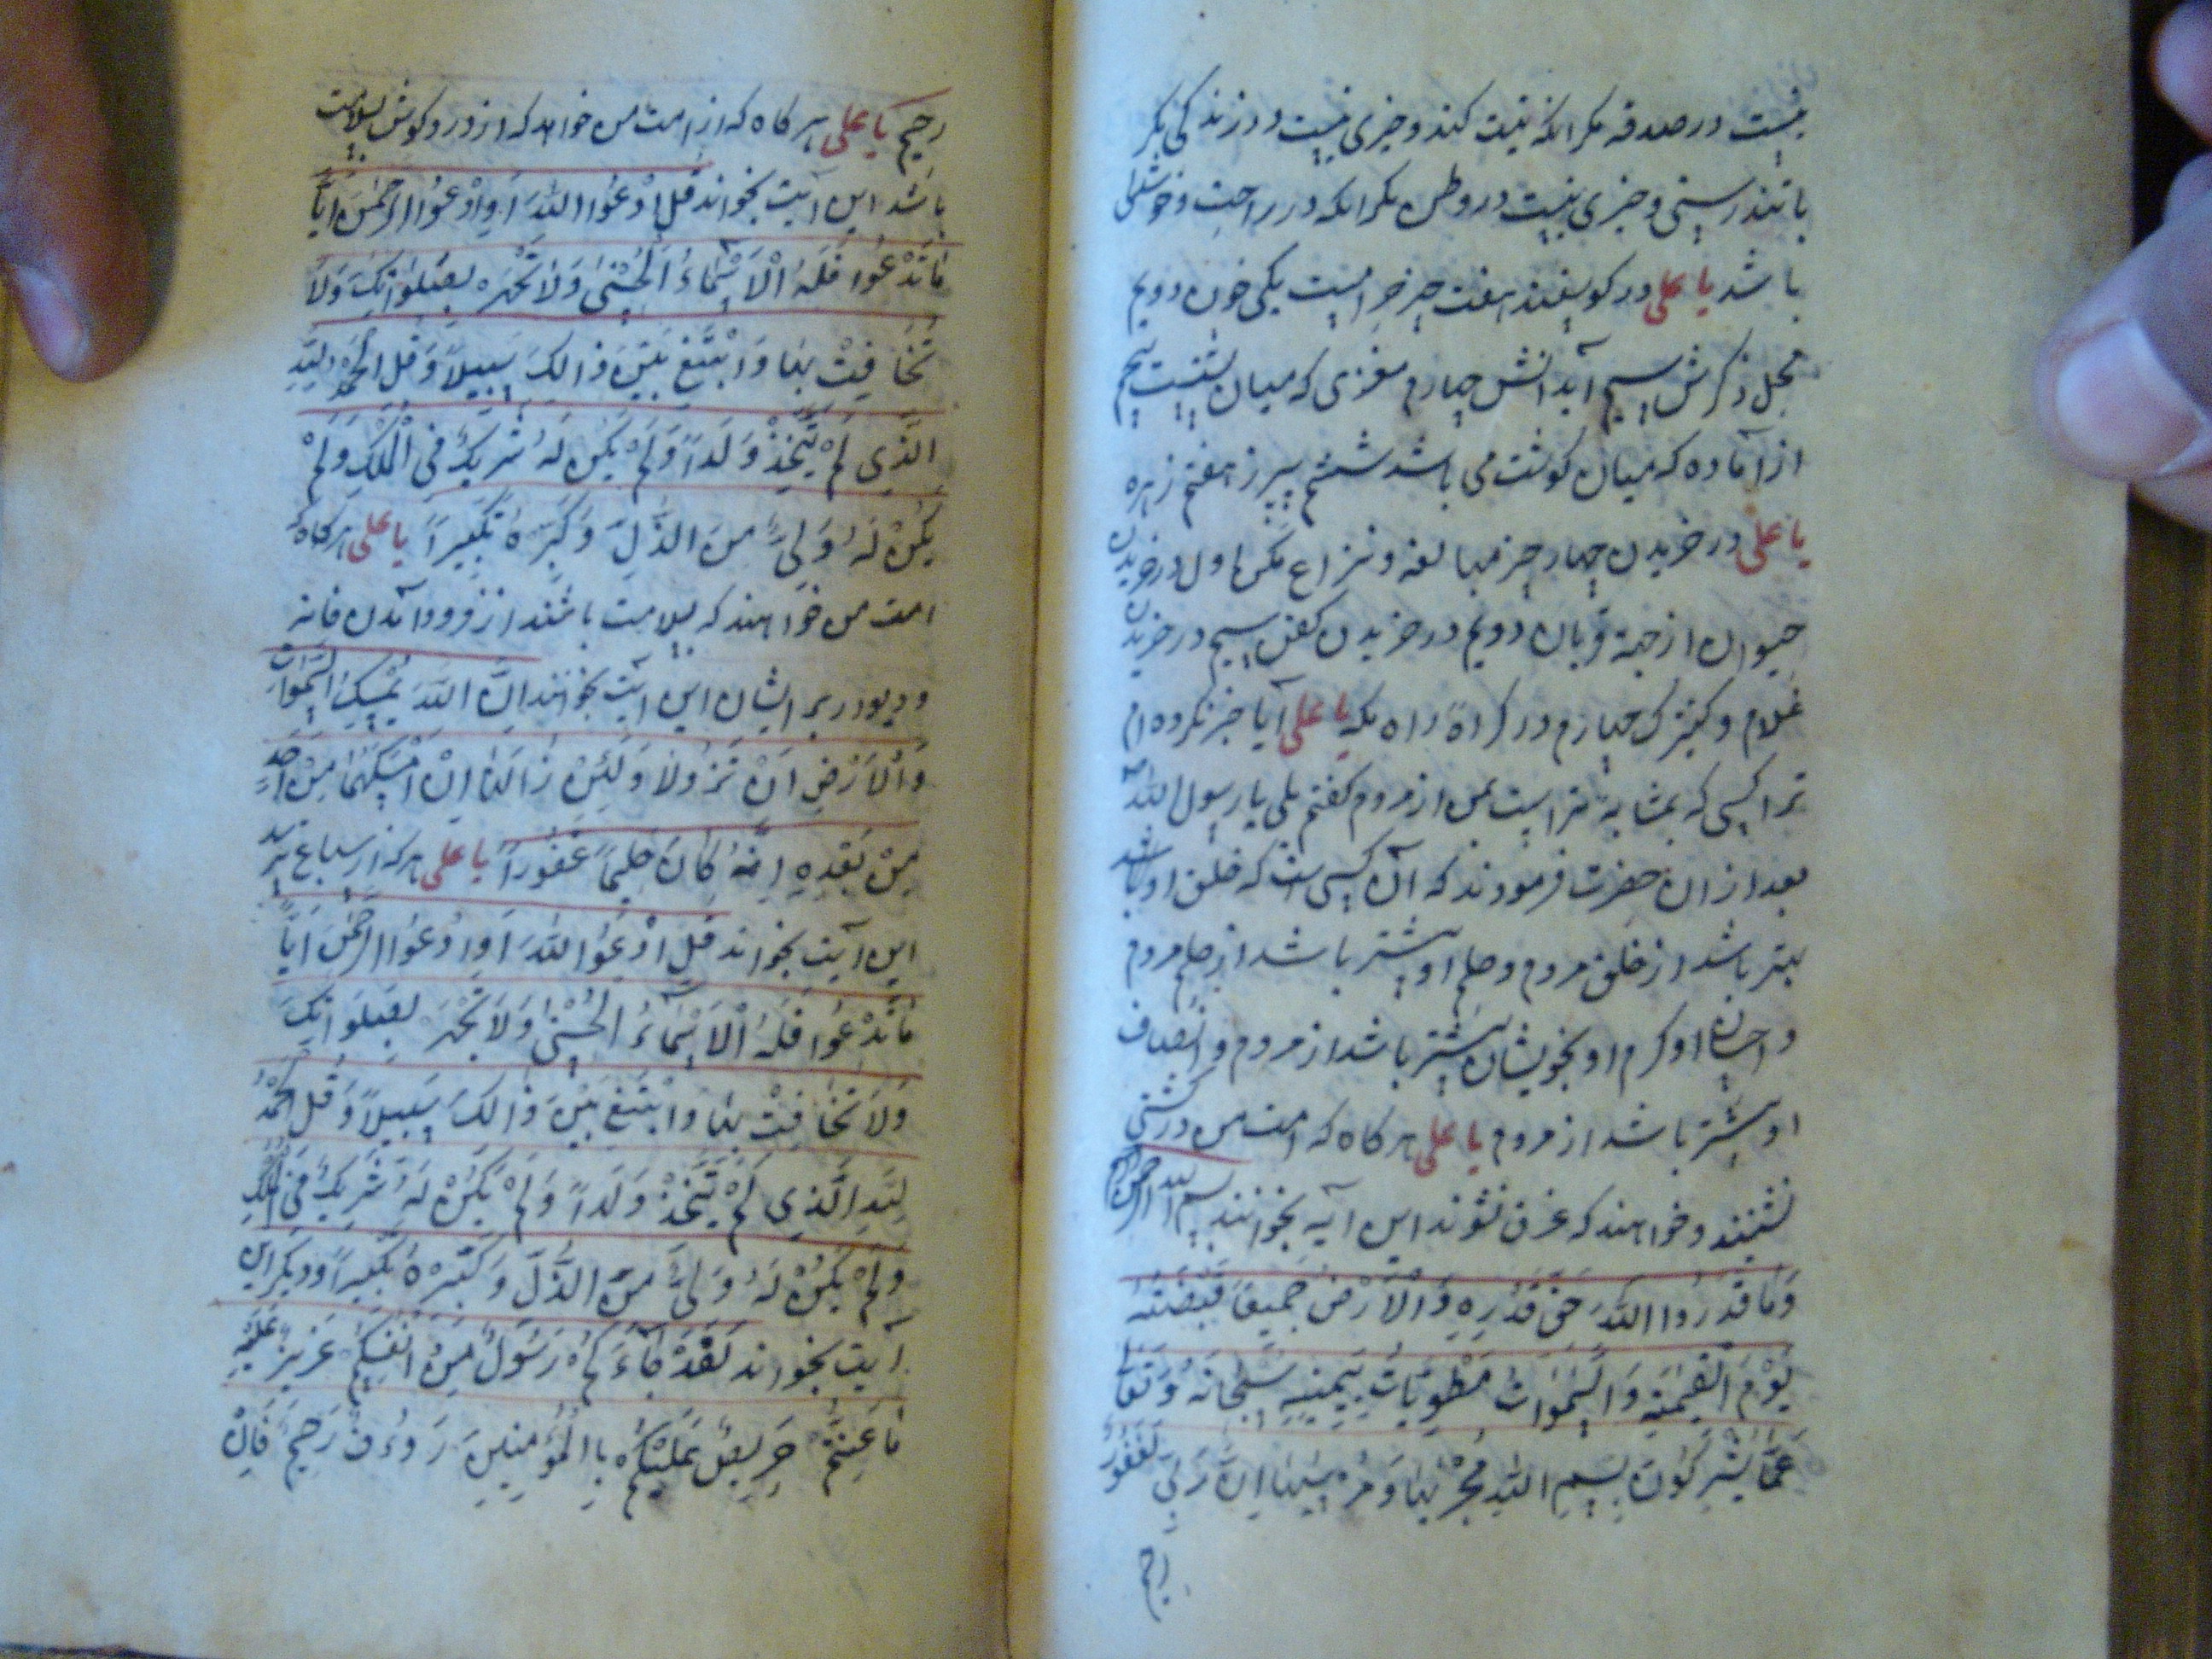 نیست در صدقه مکر انکه نیت کند و خیری نیست در زندکی مکر
با تندرستی و خیری نیست در وطن مکر انکه در راحت و خوشدلی
باشد یا علی در کوسفند هفت چیز حرامست یکی خون دویم
محل ذکرش سیم آبدانش چهارم مغزی که میان پشتست پنجم
از آماده که میان کوشت می باشد ششم سپرز هفتم زهره
یا علی در خریدن چهار چیز مبالغه و نزاع مکن اول در خریدن
حیوان از جهة قربان دویم در خریدن کفن سیم در خریدن
غلام و کنیزک چهارم در کراهٔ راه مکه یا علی آیا خبر نکرده ام
ترا کسی که بمشابه تر است بمن از مردم کفتم بلی یا رسول الله
بعد از ان حضرت فرمودند که آن کسی ست که خلق او باشد
بهتر باشد از خلق مردم و حلم او بیشتر باشد از حلم مردم
و احسان او کرم او بخویشان بیشتر باشد از مردم و انصاف
او بیشتر باشد از مردم یا علی هر کاه که امت من در کشتی
نشینند و خواهند که غرق نشوند این آیه بخوانند بسم الله الرحمن الرحیم
وَمَا قَدَرُوا اللّهَ حَقَّ قَدْرِهِ وَالْاَرْضُ جَمیعًا قَبْضَتُهُ
یَوْمَ الْقِیمَةِ وَ السَّمٰوَاتُ مَطْوِیّاتٌ بِیَمینِهِ سُبْحَانَهُ وَتَعَالٰی
عَمَّا یُشْرِکُونَ بِسْمِ اللّهِ مَجْرٰیهَا وَمُرْسٰیهَا اِنَّ رَبّی لَغَفُورٌ
رحیم
رحیم یا علی هر کاه که از امت من خواهد که از دزد و کوش بسلامت
باشد این آیت بخواند قُلِ ادْعُوا اللّهَ اَوِ ادْعُوا الرَّحْمٰنَ اَیًّا
مَا تَدْعُوا فَلَهُ الْاَسْمَاءُ الْحُسْنٰی وَلَا تَجْهَرْ بِصَلَوٰاتِکَ وَلَا
تُخَافِتْ بِهَا وَابْتَغِ بَیْنَ ذٰالِکَ سَبِیلًا وَقُلِ الْحَمْدُ لِلّهِ
الَّذِی لَمْ یَتَّخِذْ وَلَدًا وَلَمْ یَکُنْ لَهُ شَرِیکٌ فِی الْمُلْکِ وَلَمْ
یَکُنْ لَهُ وَلِیٌّ مِنَ الذُّلِّ وَکَبِّرْهُ تَکْبِیرًا یا علی هر کاه که
امت من خواهند که بسلامت باشند از فرود آمدن خانه
و دیوار بر ایشان این آیت بخوانند اِنَّ اللّهَ یُمْسِکُ السَّمٰوَاتِ
وَالْاَرْضِ اَنْ تَزُولَا وَلَئِنْ زَالَتَا اِنْ اَمْسَکَهُمَا مِنْ اَحَدٍ
مِنْ بَعْدِهِ اِنَّهُ کَانَ حَلِیمًا غَفُورًا یا علی هر که از سباع ترسد
این آیت بخواند قُلِ ادْعُوا اللّهَ اَوِ ادْعُوا الرَّحْمٰنَ اَیًّا
مَا تَدْعُوا فَلَهُ الْاَسْمَاءُ الْحُسْنٰی وَلَا تَجْهَرْ بِصَلَوٰاتِکَ
وَلَا تُخَافِتْ بِهَا وَابْتَغِ بَیْنَ ذٰالِکَ سَبِیلًا وَقُلِ الْحَمْدُ
لِلّهِ الَّذِی لَمْ یَتَّخِذْ وَلَدًا وَلَمْ یَکُنْ لَهُ شَرِیکٌ فِی الْمُلْکِ
وَلَمْ یَکُنْ لَهُ وَلِیٌّ مِنَ الذُّلِّ وَکَبِّرْهُ تَکْبِیرًا و دیکر این
آیت بخواند لَقَدْ جَاءَکُمْ رَسُولٌ مِنْ اَنْفُسِکُمْ عَزِیزٌ عَلَیْهِ
مَا عَنِتُّمْ حَرِیصٌ عَلَیْکُمْ بِالْمُؤْمِنِینَ رَوُءُفٌ رَحِیمٌ فَاِنْ